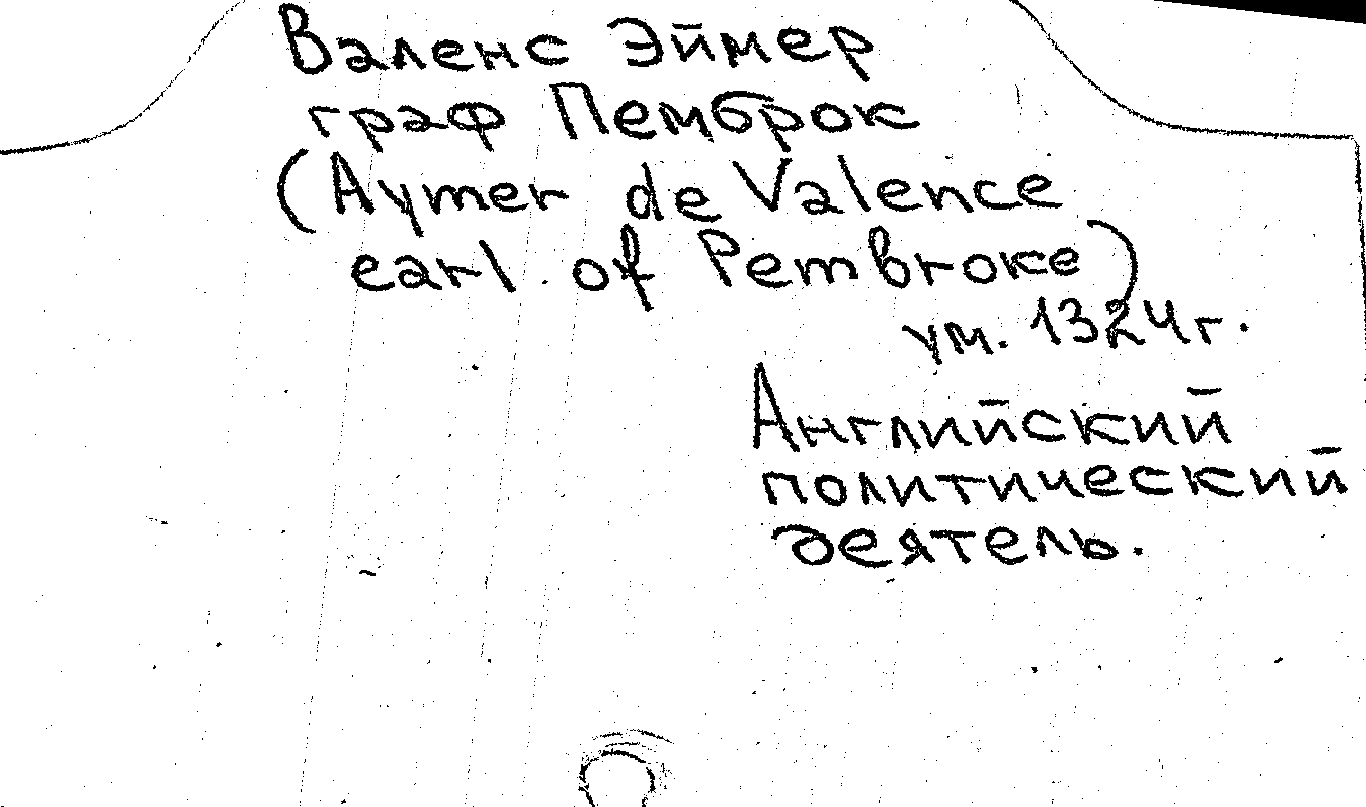 Валенс Эймер
граф Пемброк
(Aymer de Valence
earl of Pembroke)
ум. 1324г.
Английский
политический
деятель.